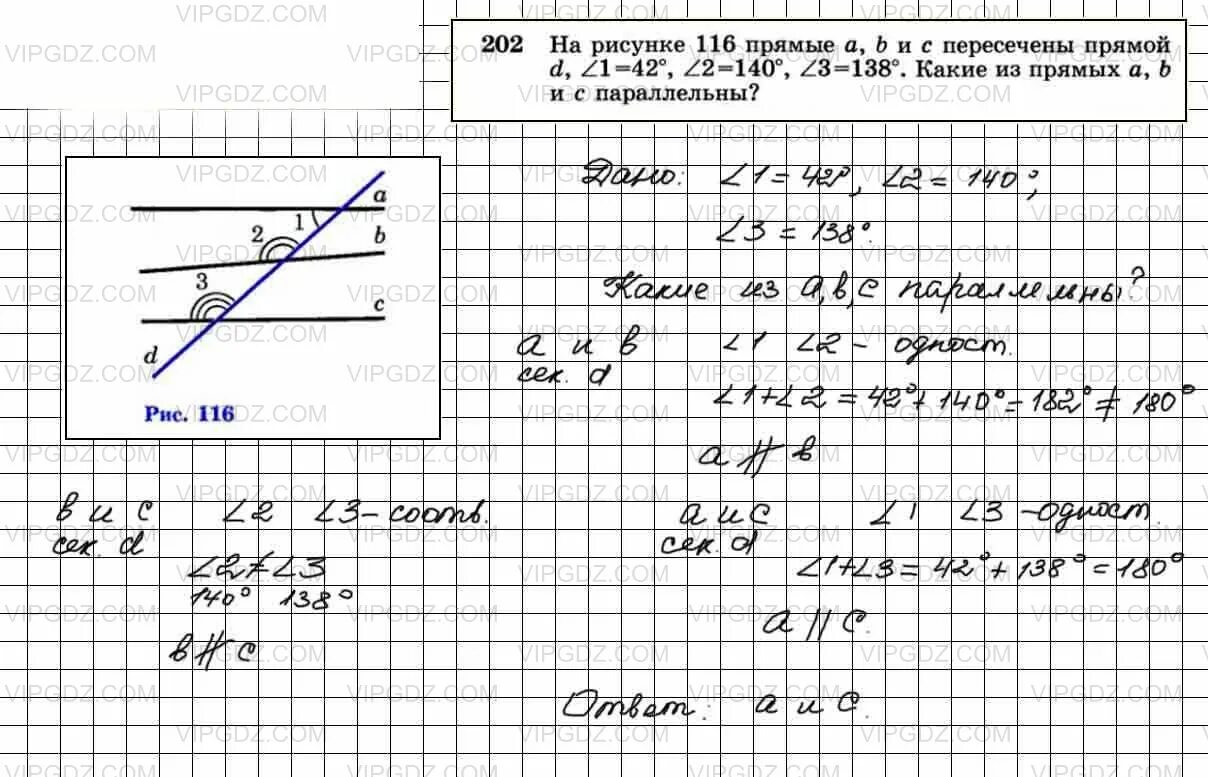 202 На рисунке 116 прямые a, b и c пересечены прямой
d, ∠1=42°, ∠2=140°, ∠3=138°. Какие из прямых a, b
и c параллельны?
a
1
2
b
3
c
d
Рис. 116
Дано: ∠1 = 42°, ∠2 = 140°;
∠3 = 138°.
Какие из a, b, c параллельны?
a и b ∠1 ∠2 - одност.
сек. d
∠1+∠2 = 42°+140° = 182° ≠ 180°
a ∦ b
b и c ∠2 ∠3 - соотв.
сек. d
∠2 ≠ ∠3
140° 138°
b ∦ c
a и c ∠1 ∠3 - одност.
сек. d
∠1+∠3 = 42°+138° = 180°
a || c.
Ответ: a и c.
VIPGDZ.COM